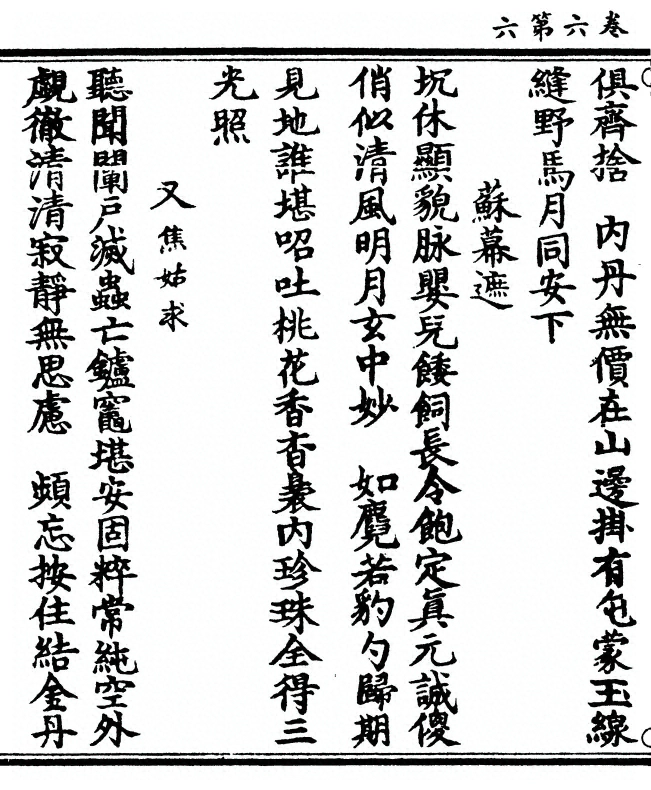 卷六第六
俱齊捨　內丹無價在山邊掛有㐌蒙玉線
縫野馬月同安下
蘇幕遮
坎休顯貌脉嬰兒餧飼長令飽定眞元誠傻
俏似清風明月玄中妙　如麑若豹勺歸期
見地誰堪啒吐桃花香杳裊內珍珠全得三
光照
又焦姑求
聽聞闡戶滅蟲亡鑪竈堪安固粹常純空外
覷徹清清寂靜無思慮　頻忘按住結金丹